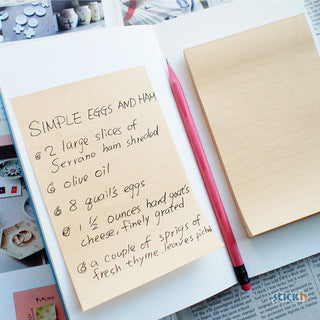 SIMPLE EGGS AND HAM
2 large slices of
Serrano ham shreded
olive oil
8 quail's eggs
1 1/2 ounces hard goat's
cheese, finely grated
a couple of sprigs of
fresh thyme leaves picked
STICK'N